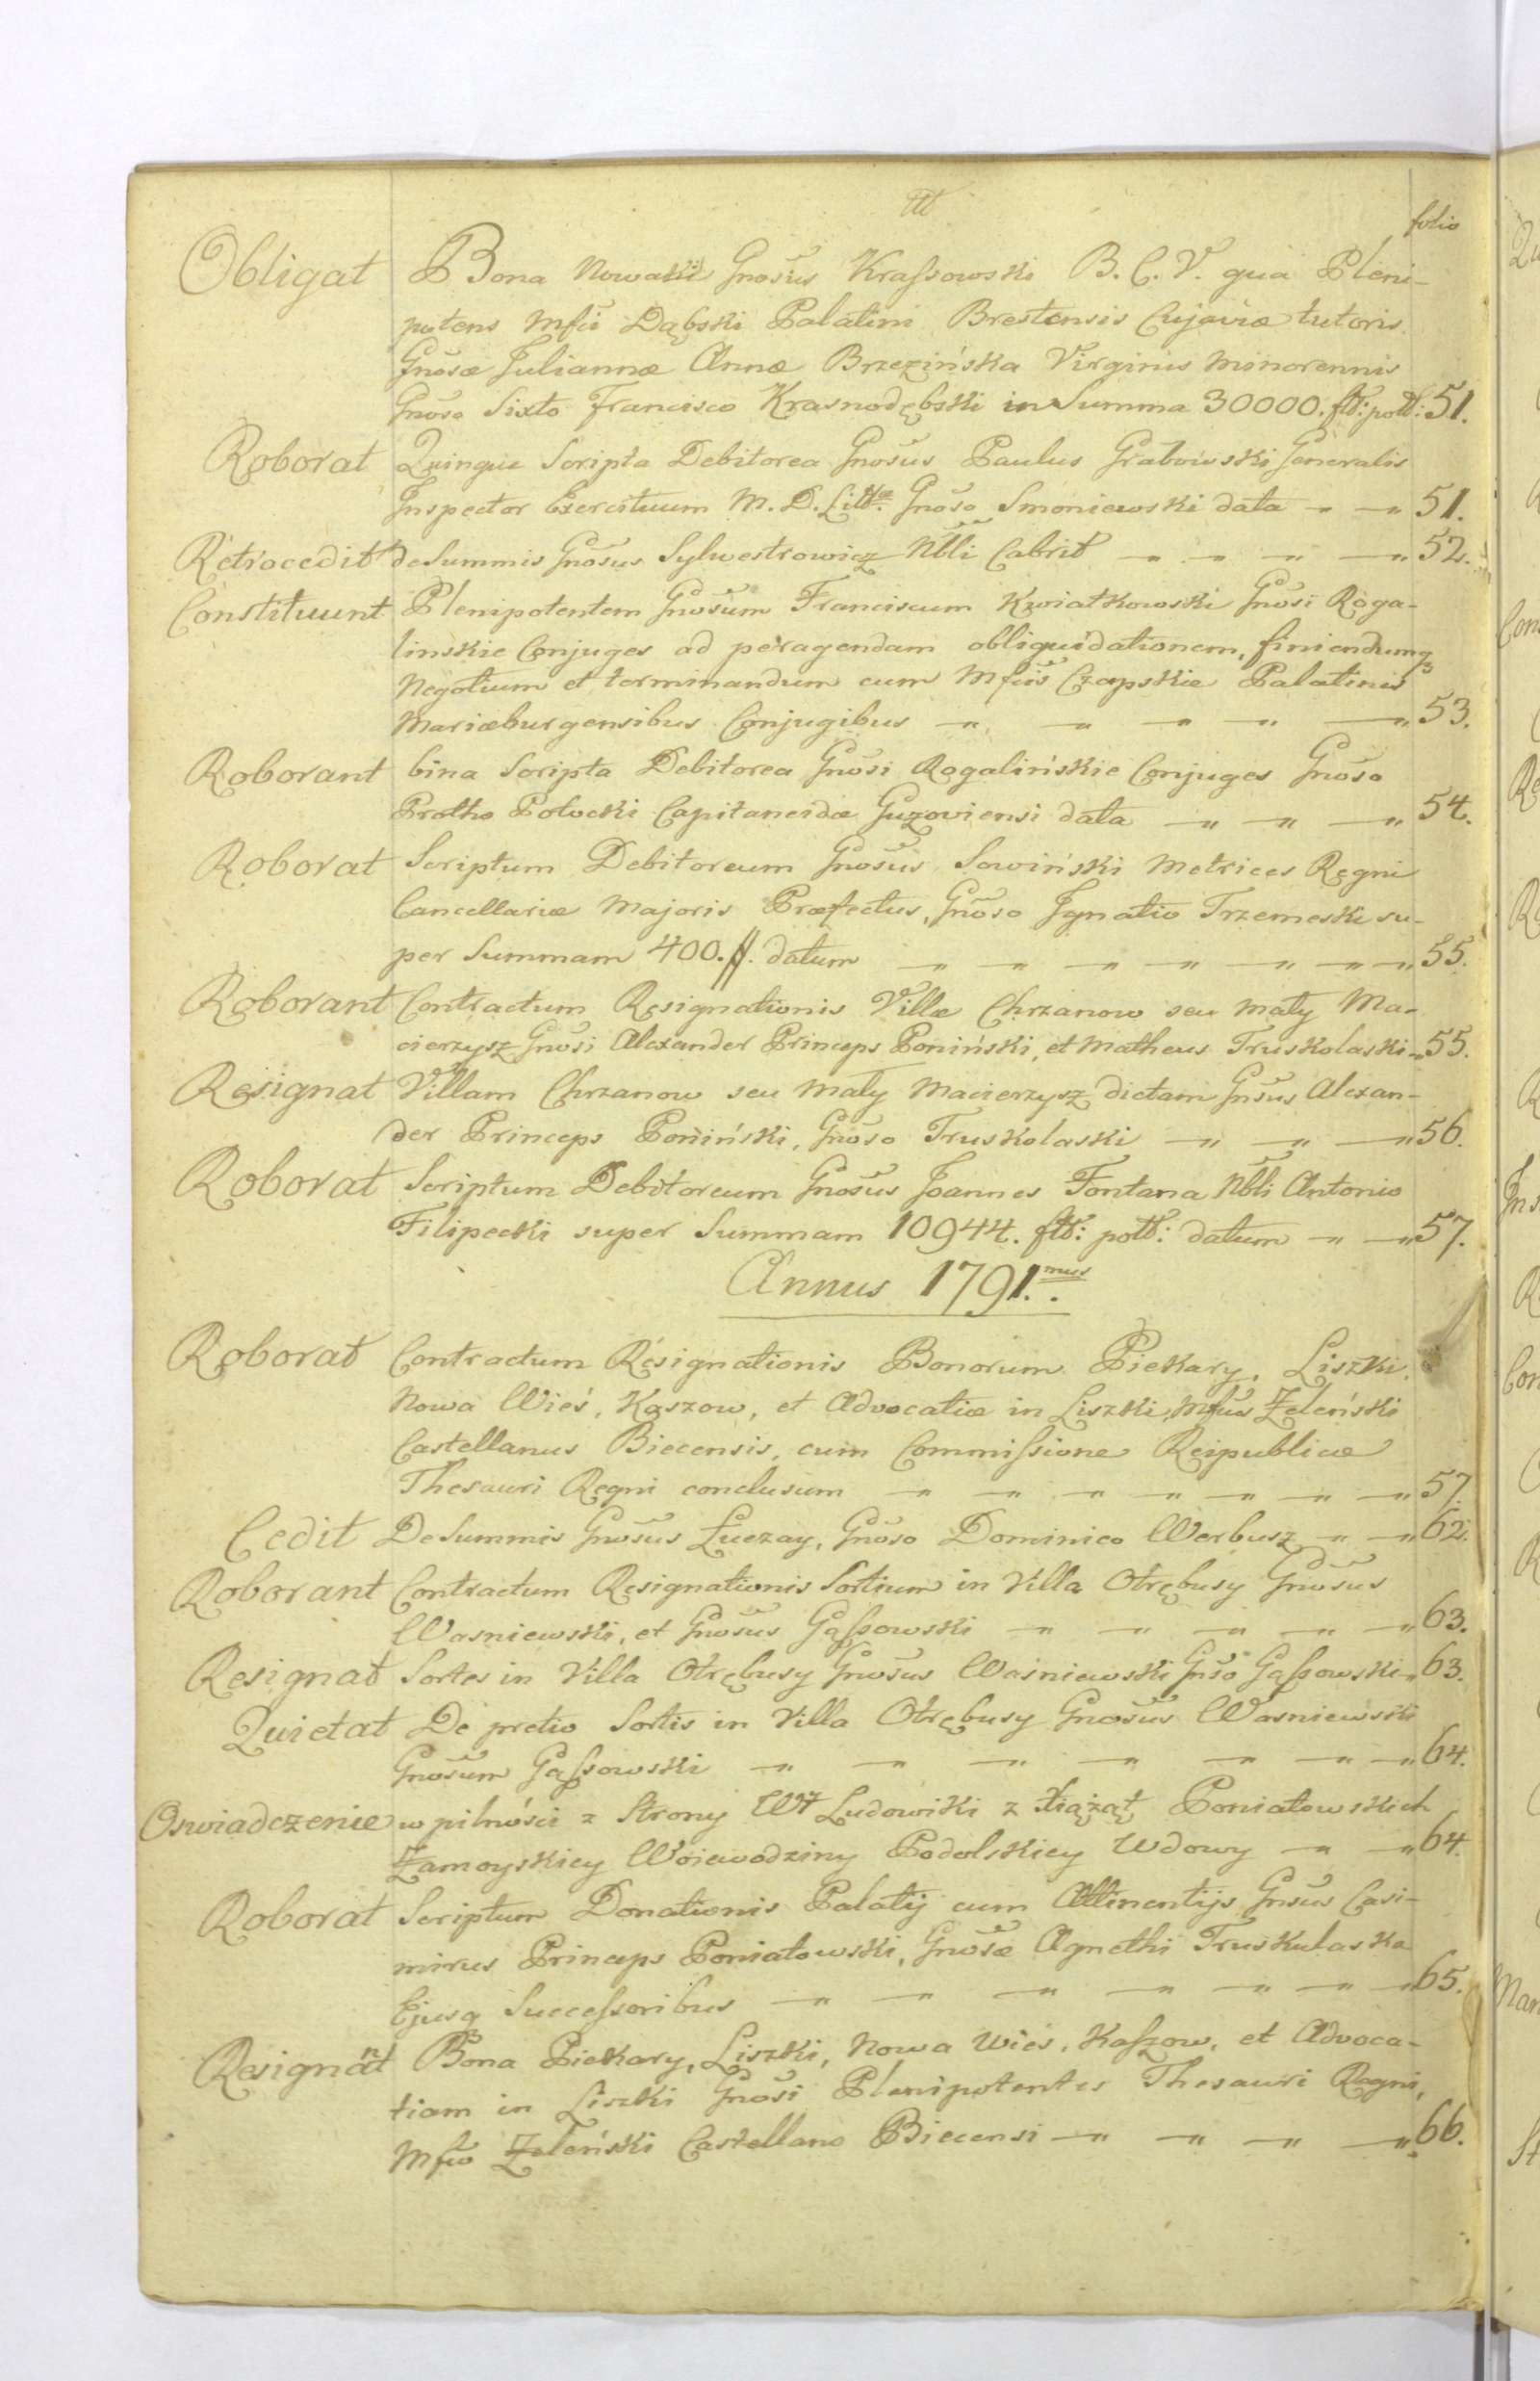 folio
Obligat Bona Nowaki Gnosus Krassowski B. C. V. qua Pleni-
potens Mfci Dąbski Palatini Brestensis Cujaviæ tutoris
Gnosæ Juliannæ Annæ Brzezińska Virginis minorennis
Gnoso Sixto Francisco Krasnodębski in Summa 30000. flt: polt: 51.
Roborat Quinque Scripta Debitorea Gnosus Paulus Grabowski Generalis
Inspector Exercituum M. D. Litt. Gnoso Smoniewski data 51.
Retrocedit de Summis Gnosus Sylwestrowicz Nbli Cabrit 52.
Constituunt Plenipotentem Gnosum Franciscum Kwiatkowski Gnosi Roga-
linskie Conjuges ad peragendam obliquidationem, finiendumq
Negotium et terminandum cum Mfcis Czapskie Palatinis
Mariæburgensibus Conjugibus 53.
Roborant bina Scripta Debitorea Gnosi Rogalińskie Conjuges Gnoso
Protho Potocki Capitaneidæ Guzoviensi data 54.
Roborat Scriptum Debitoreum Gnosus Sowiński Metrices Regni
Cancellariæ Majoris Præfectus, Gnoso Ignatio Trzemeski su-
per Summam 400. #. datum 55.
Roborant Contractum Resignationis Villæ Chrzanow seu mały Ma-
cierzysz Gnosi Alexander Princeps Poniński, et Matheus Truskolaski 55.
Resignat Villam Chrzanow seu mały Macierzysz dictam Gnsus Alexan-
der Princeps Poniński, Gnoso Truskolaski 56.
Roborat Scriptum Debitoreum Gnosus Joannes Fontana Nbli Antonio
Filipecki super Summam 10944. flt: polt: datum 57.
Annus 1791.mus
Roborat Contractum Resignationis Bonorum Piekary, Liszki,
Nowa Wieś, Kaszow, et Advocatiæ in Liszki, Mfcus Żeleński
Castellanus Biecensis, cum Commissione Reipublicæ
Thesauri Regni conclusum 57.
Cedit De Summis Gnosus Łuczay, Gnoso Dominico Werbusz 62.
Roborant Contractum Resignationis Sortium in Villa Otrębusy Gnosus
Wasniewski, et Gnosus Gąssowski 63.
Resignat Sortes in Villa Otrębusy Gnosus Waśniewski Gnso Gąssowski 63.
Quietat De pretio Sortis in Villa Otrębusy Gnosus Wasniewski
Gnosum Gąssowski 64.
Oswiadczenie w pilności z Strony Wż Ludowiki z Xiążąt Poniatowskich
Zamoyskiey Woiewodziny Podolskiey Wdowy 64.
Roborat Scriptum Donationis Palatij cum Attinentijs Gnsus Casi-
mirus Princeps Poniatowski, Gnosæ Agnethi Truskulaska
Ejusq Successoribus 65.
Resignant Bona Piekary, Liszki, Nowa Wieś, Kaszow, et Advoca-
tiam in Liszki Gnosi Plenipotentes Thesauri Regni,
Mfco Żeleński Castellano Biecensi 66.